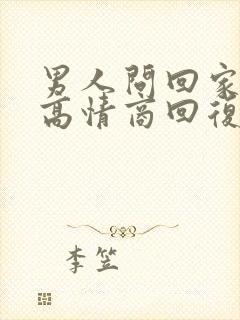 男人問回家
高情商回復
李笠